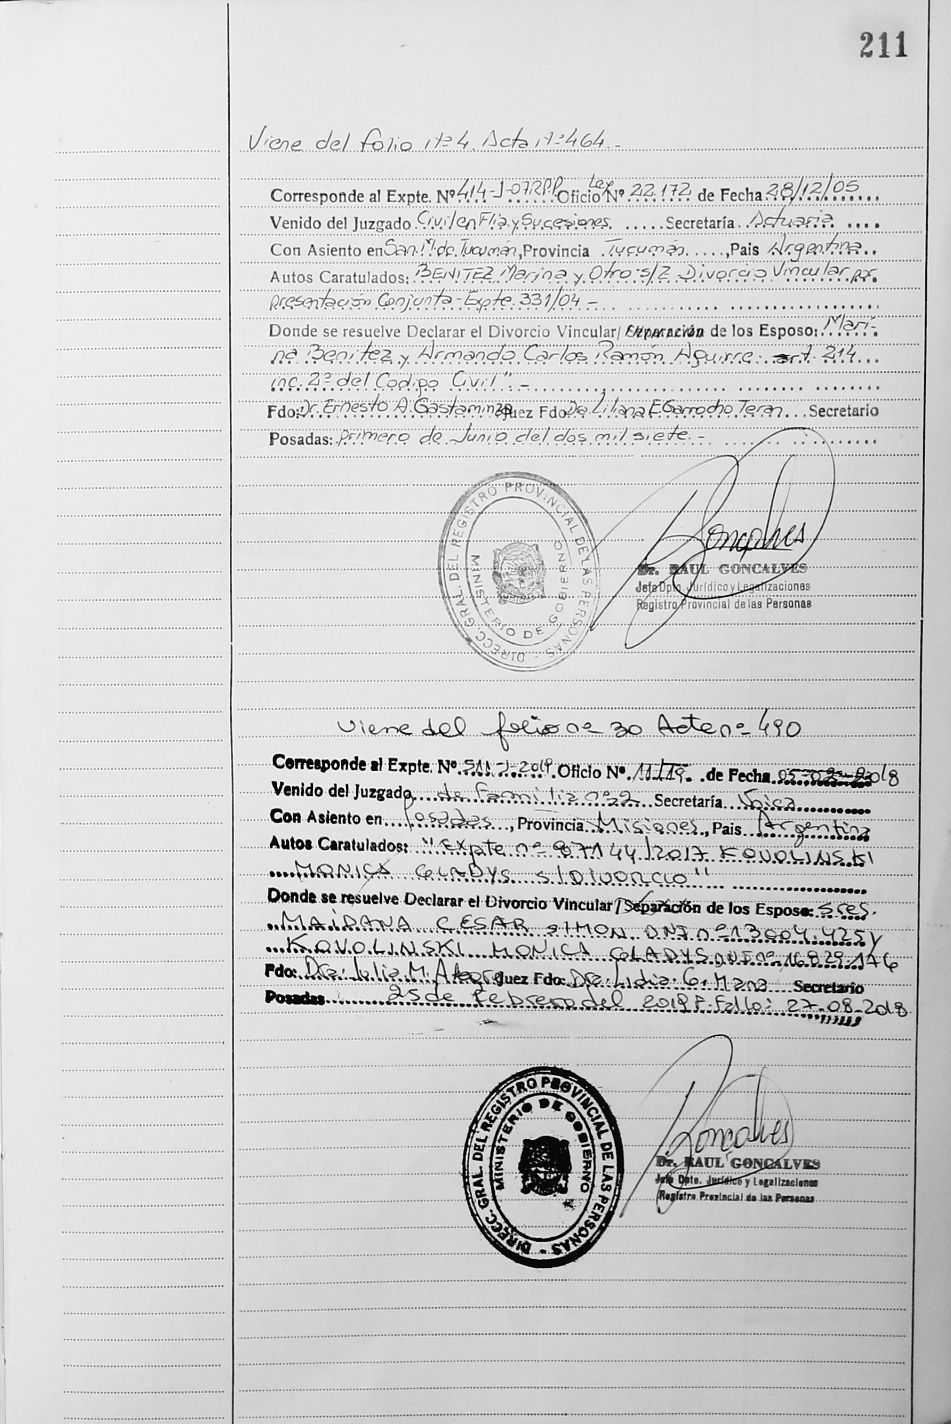 211
Viene del folio nº 4. Acta nº 464.-
Corresponde al Expte. Nº 414-J-07RPP. Oficio Ley Nº 22.172 de Fecha 28/12/05
Venido del Juzgado Civil en Flia y Sucesiones. Secretaría Actuaria
Con Asiento en San M. de Tucumán, Provincia Tucumán, Pais Argentina.
Autos Caratulados: BENITEZ Marina y Otro s/Z Divorcio Vincular por
presentación Conjunta - Expte. 331/04 -
Donde se resuelve Declarar el Divorcio Vincular/ Separación de los Esposo: Mari-
na Benitez y Armando Carlos Ramón Aguirre art. 214
inc. 2º del Codigo Civil" -
Fdo: Dr Ernesto A. Gastaminza Juez Fdo: Dra Liliana E Garrocho Teran Secretario
Posadas: primero de Junio del dos mil siete.-
DIRECC. GRAL. DEL REGISTRO PROVINCIAL DE LAS PERSONAS -
MINISTERIO DE GOBIERNO
Goncalves
Dr. RAUL GONCALVES
Jefe Dpto. Jurídico y Legalizaciones
Registro Provincial de las Personas
Viene del folio nº 30 Acta nº 490
Corresponde al Expte. Nº 511-J-2019. Oficio Nº 11/19. de Fecha
Venido del Juzgado de Familia nº 2 Secretaría Unica
Con Asiento en Posadas, Provincia Misiones, Pais Argentina
Autos Caratulados: "Expte nº 87144/2017 KOVOLINSKI
MONICA GLADYS S/DIVORCIO"
Donde se resuelve Declarar el Divorcio Vincular/ Separación de los Esposo: Sres.
MAIDANA CESAR SIMON DNI nº 13.004.425 y
KOVOLINSKI MONICA GLADYS DNI nº 16.829.176
Fdo: Dra. Julia M. Alegre Juez Fdo: Dra. Lidia G. Mana Secretario
Posadas 25 de Febrero del 2019 F. Fallo: 27-08-2018
DIRECC. GRAL. DEL REGISTRO PROVINCIAL DE LAS PERSONAS -
MINISTERIO DE GOBIERNO
Goncalves
Dr. RAUL GONCALVES
Jefe Dpto. Jurídico y Legalizaciones
Registro Provincial de las Personas